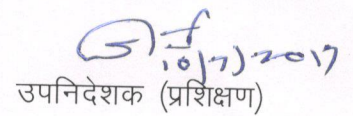 10/7/2017
उपनिदेशक (प्रशिक्षण)